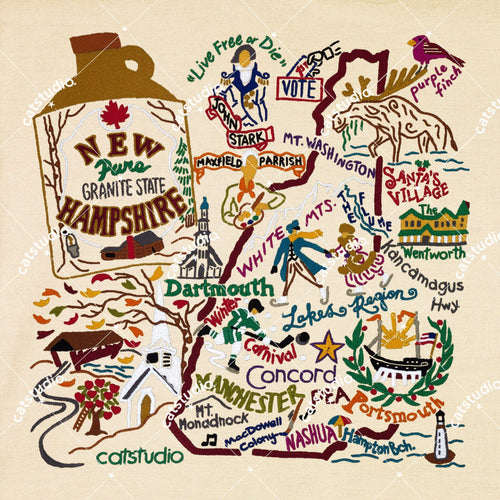 "Live Free or Die"
1ST
VOTE
purple
finch
JOHN
STARK
NEW
Pure
GRANITE STATE
HAMPSHIRE
MAXFIELD PARRISH
MT. WASHINGTON
SANTA'S
VILLAGE
THE
FLUME
The
Wentworth
WHITE MTS.
Kancamagus
Hwy
Dartmouth
Winter
Carnival
Lakes Region
Concord
MANCHESTER
Portsmouth
Mt.
Monadnock
MacDowell
Colony
NASHUA
Hampton Bch.
catstudio